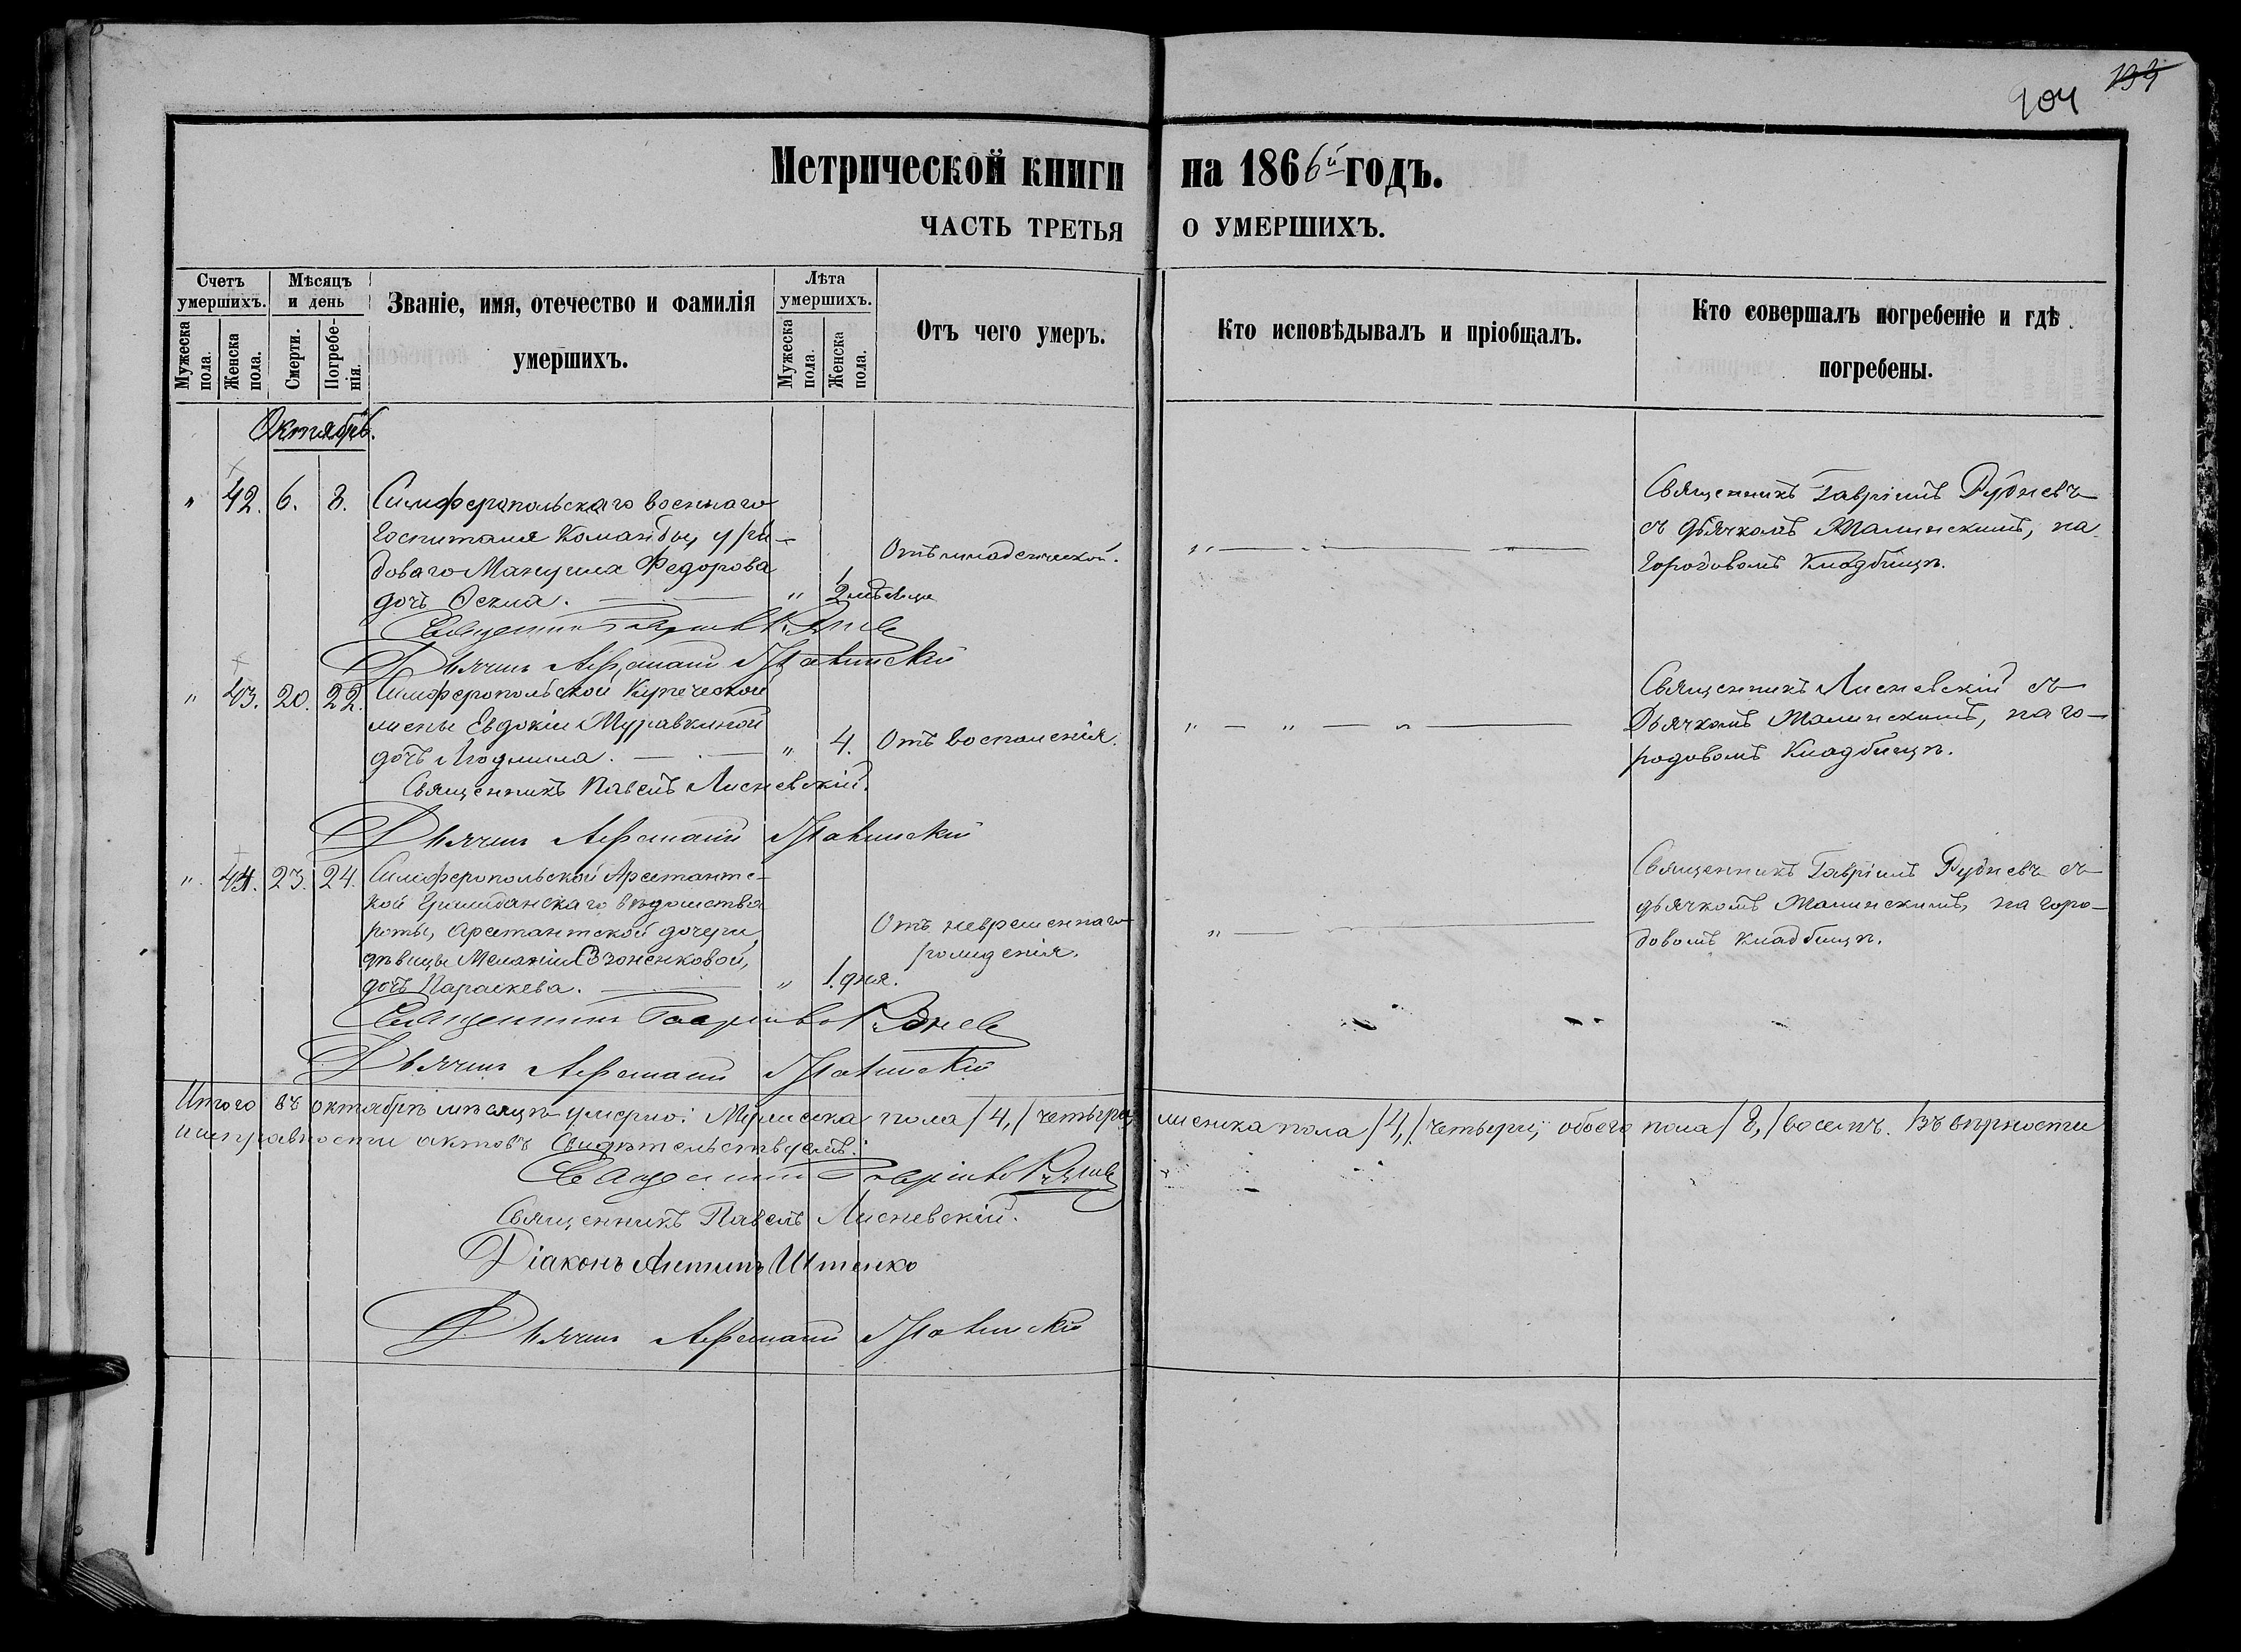 133
904
Метрической книги на 1866й годъ.
ЧАСТЬ ТРЕТЬЯ О УМЕРШИХЪ.
Счетъ умершихъ.
Мужеска пола.
Женска пола.
Мѣсяцъ и день
Смерти.
Погребенія.
Званіе, имя, отечество и фамилія
умершихъ.
Лѣта умершихъ.
Мужеска пола.
Женска пола.
Отъ чего умеръ.
Кто исповѣдывалъ и пріобщалъ.
Кто совершалъ погребеніе и гдѣ
погребены.
Октябрь.
" 42. 6. 8. Симферопольскаго военнаго
госпиталя Команды, у ря-
доваго Мануила Федорова
дочь . — " 2 мѣсяца
Отъ младенческой.
Священникъ Гавріилъ Рудневъ
съ дьячкомъ Малинскимъ, на
Городовомъ Кладбищѣ.
Священникъ Гавріилъ Рудневъ
Дьячекъ
" 43. 20. 22. Симферопольской Купеческой
жены Евдокіи Муравкиной
дочь Людмила. — " 4. Отъ воспаленія.
Священникъ Лисневскій съ
Дьячкомъ Малинскимъ, на го-
родовомъ Кладбищѣ.
Священникъ Павелъ Лисневскій.
Дьячекъ
" 44. 23. 24. Симферопольской Арестантс-
кой Гражданскаго вѣдомства
роты, арестантской дочери,
дѣвицы Меланіи
дочь Параскева. — " 1. дня.
Отъ невременнаго
рожденія.
Священникъ Гавріилъ Рудневъ съ
дьячкомъ Малинскимъ, на горо-
довомъ кладбищѣ.
Священникъ Гавріилъ Рудневъ
Дьячекъ
Итого въ октябрѣ мѣсяцѣ умерло: Мужеска пола /4,/ четыре, женска пола /4,/ четыри, обоего пола /8,/ восемь. Въ вѣрности
исправности актовъ Свидѣтельствуемъ:
Священникъ Гавріилъ Рудневъ
Священникъ Павелъ Лисневскій.
Діаконъ Антипъ Штенко
Дьячекъ